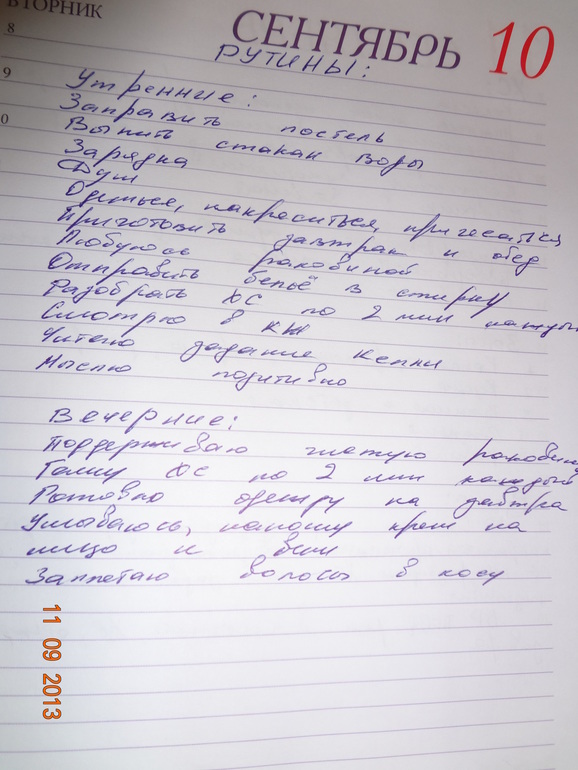 ВТОРНИК
СЕНТЯБРЬ 10
8
РУТИНЫ:
9
Утренние:
0
Заправить постель
Выпить стакан воды
Зарядка
Душ
Одеться, накраситься, причесаться
Приготовить завтрак и обед
Любуюсь раковиной
Отправить бельё в стирку
Разобрать ХС по 2 мин каждый
Смотрю в КЖ
Читаю задание Келли
Мыслю позитивно
Вечерние:
Поддерживаю чистую раковину
Гашу ХС по 2 мин каждый
Готовлю одежду на завтра
Умываюсь, наношу крем на
лицо и
Заплетаю волосы в косу
11 09 2013